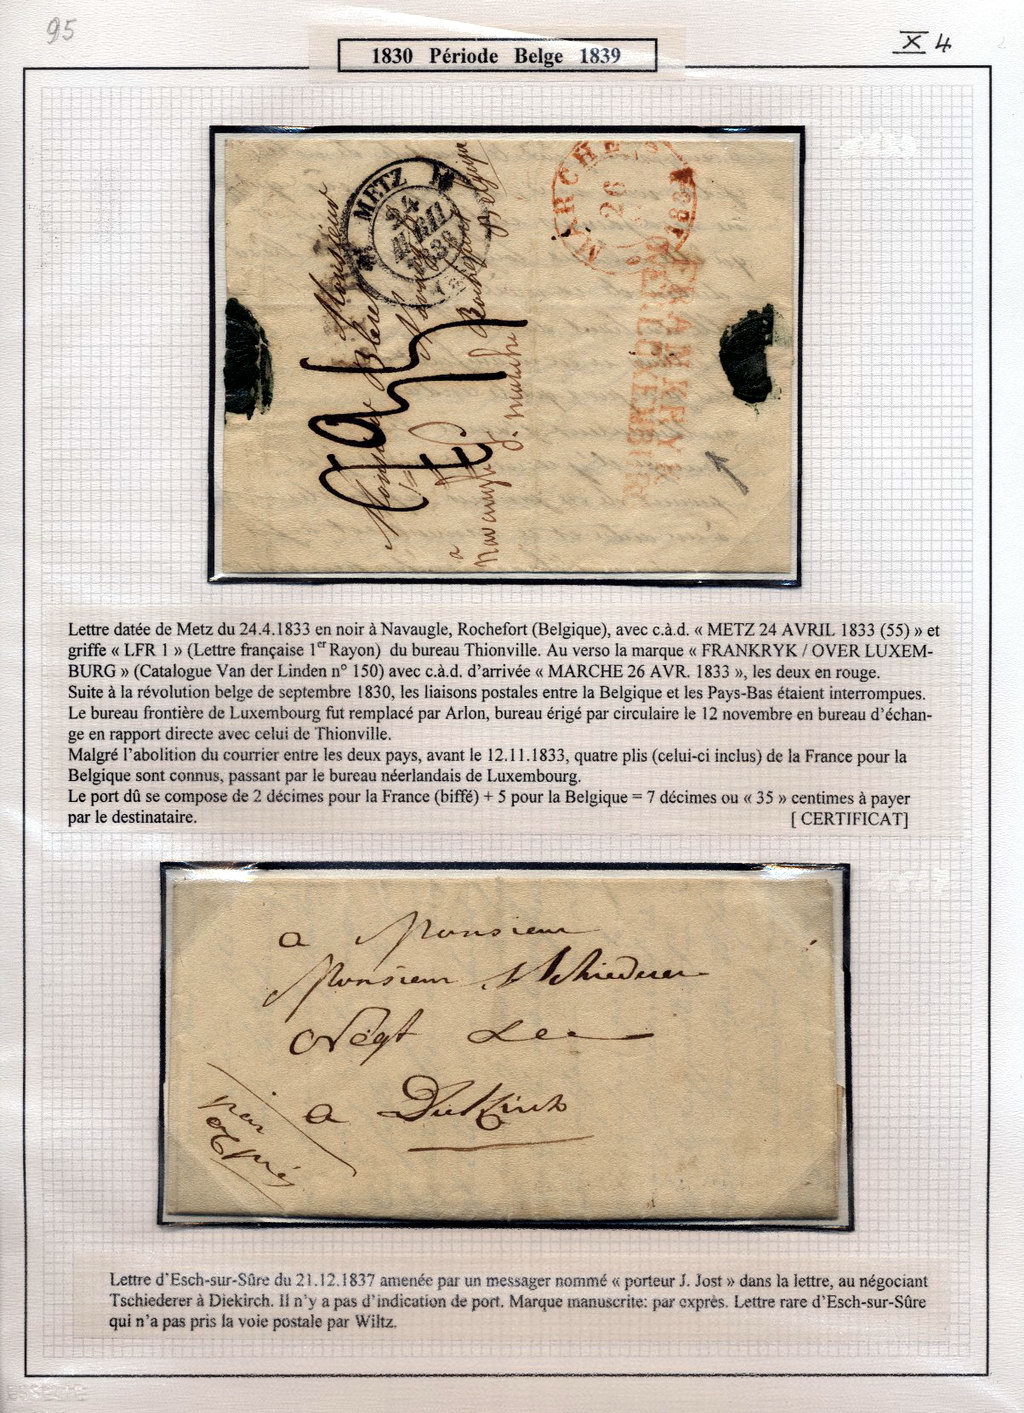 95
X 4
1830 Période Belge 1839
METZ
24
AVRIL
1833
MARCHE
26
1833
Monsieur
Rochefort
Belgique
FRANKRYK
OVER LUXEMBURG
Lettre datée de Metz du 24.4.1833 en noir à Navaugle, Rochefort (Belgique), avec c.à.d. « METZ 24 AVRIL 1833 (55) » et
griffe « LFR 1 » (Lettre française 1er Rayon) du bureau Thionville. Au verso la marque « FRANKRYK / OVER LUXEM-
BURG » (Catalogue Van der Linden n° 150) avec c.à.d. d'arrivée « MARCHE 26 AVR. 1833 », les deux en rouge.
Suite à la révolution belge de septembre 1830, les liaisons postales entre la Belgique et les Pays-Bas étaient interrompues.
Le bureau frontière de Luxembourg fut remplacé par Arlon, bureau érigé par circulaire le 12 novembre en bureau d'échan-
ge en rapport directe avec celui de Thionville.
Malgré l'abolition du courrier entre les deux pays, avant le 12.11.1833, quatre plis (celui-ci inclus) de la France pour la
Belgique sont connus, passant par le bureau néerlandais de Luxembourg.
Le port dû se compose de 2 décimes pour la France (biffé) + 5 pour la Belgique = 7 décimes ou « 35 » centimes à payer
par le destinataire. [ CERTIFICAT]
a Monsieur
Monsieur Tschiederer
Negt
a Diekirch
par
exprés
Lettre d'Esch-sur-Sûre du 21.12.1837 amenée par un messager nommé « porteur J. Jost » dans la lettre, au négociant
Tschiederer à Diekirch. Il n'y a pas d'indication de port. Marque manuscrite: par exprès. Lettre rare d'Esch-sur-Sûre
qui n'a pas pris la voie postale par Wiltz.